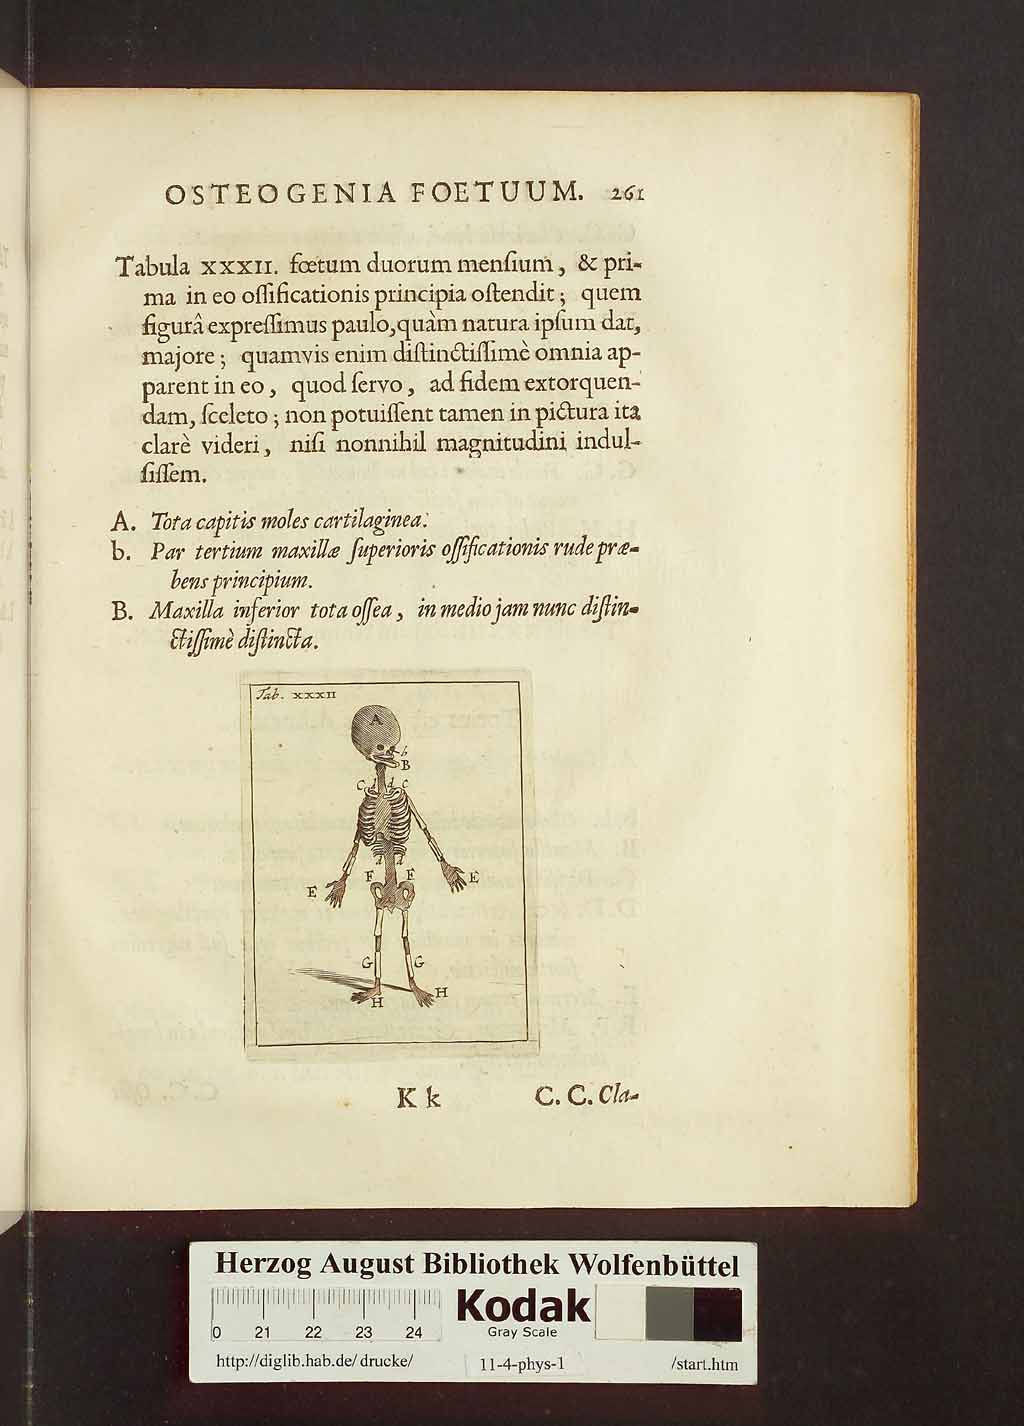 OSTEOGENIA FOETUUM. 261
Tabula XXXII. fœtum duorum menſium, & pri-
ma in eo oſſificationis principia oſtendit; quem
figurâ expreſſimus paulo, quàm natura ipſum dat,
majore; quamvis enim diſtinctiſſimè omnia ap-
parent in eo, quod ſervo, ad fidem extorquen-
dam, ſceleto; non potuiſſent tamen in pictura ita
clarè videri, niſi nonnihil magnitudini indul-
ſiſſem.
A. Tota capitis moles cartilaginea.
b. Par tertium maxillæ ſuperioris oſſificationis rude præ-
bens principium.
B. Maxilla inferior tota oſſea, in medio jam nunc diſtin-
ctiſſimè diſtincta.
Tab. XXXII
A
b
B
C d d C
d d
F E
E E
G G
H H
K k C. C. Cla-
Herzog August Bibliothek Wolfenbüttel
Kodak
Gray Scale
0 21 22 23 24
http://diglib.hab.de/drucke/ 11-4-phys-1 /start.htm